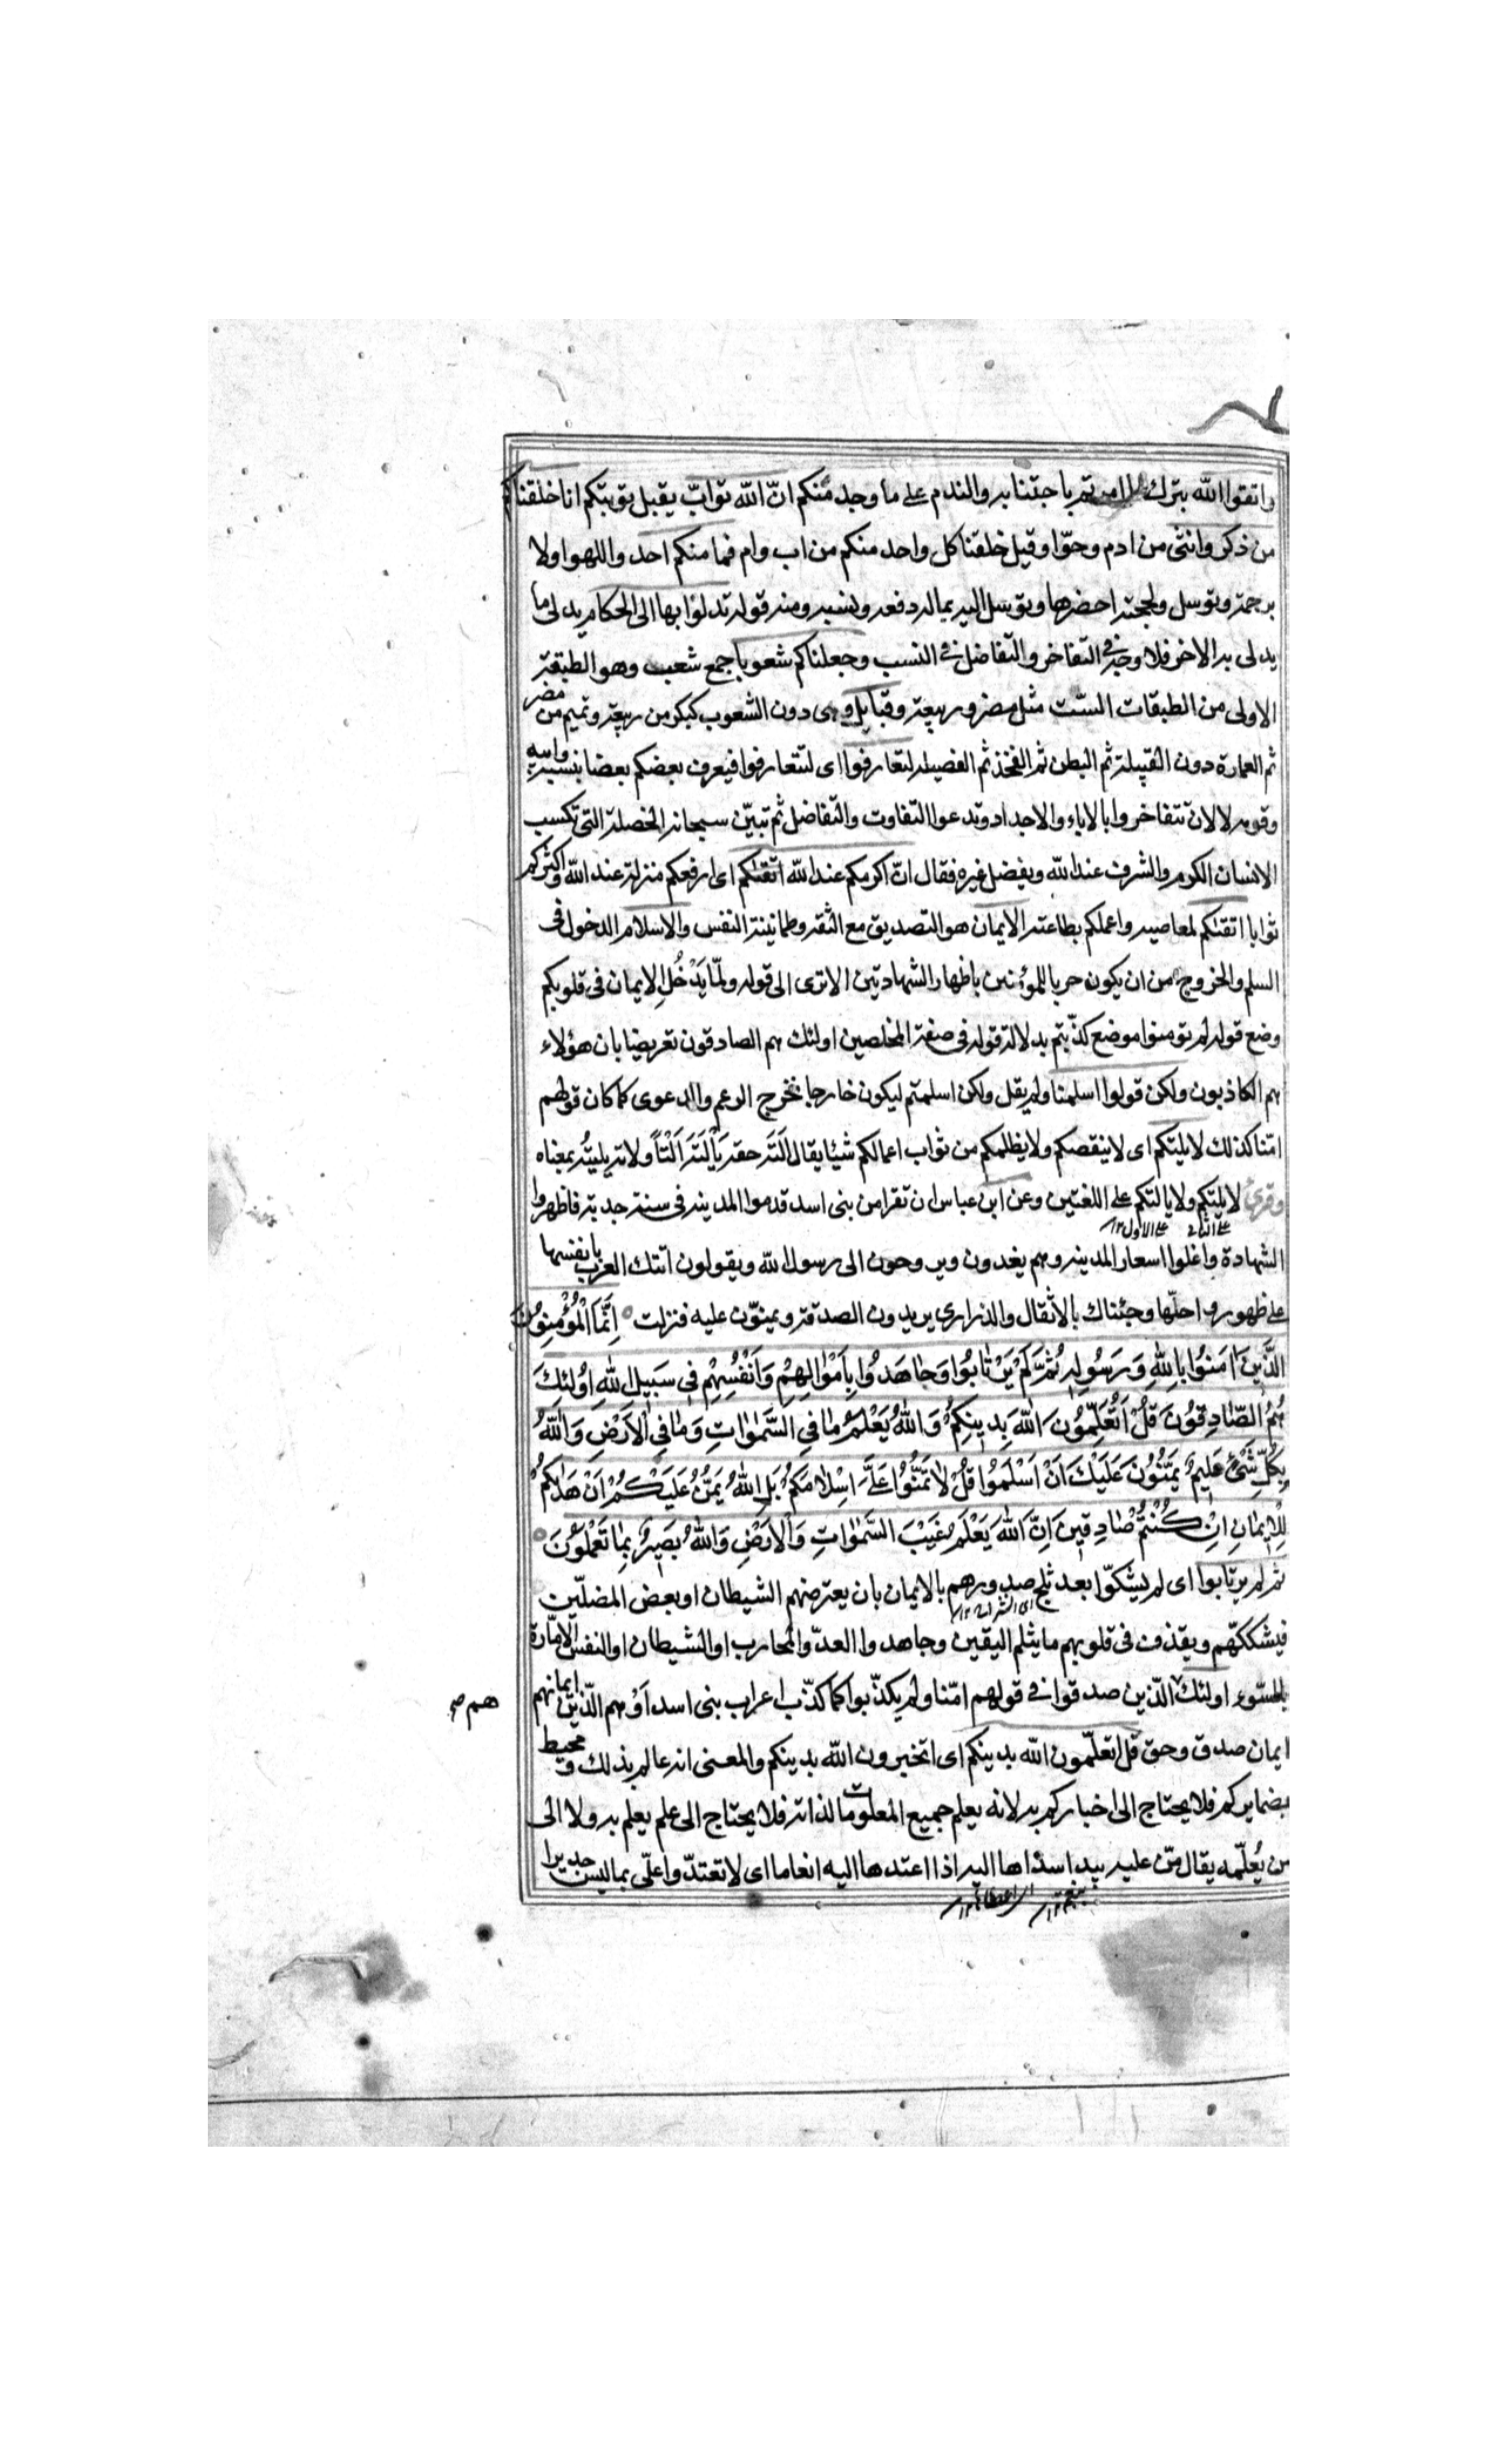 واتقوا الله بترك ما امرتم باجتنابه والندم على ما وجد منكم انّ الله توابّ يقبل توبتكم انا خلقناكم
من ذكر وانثى من ادم وحوّا وقيل خلقنا كل واحد منكم من اب وام فما منكم احد والا هو اولا
برحمته وتوسل ولحجته احضرها وتوسل اليه بماله دفعه ونسبه ومنه قوله تدلوٰا بها الى الحكام يدلى ما
يدلى به الاخر فلا وجه فى التفاخر والتفاضل فى النسب وجعلناكم شعوبا جمع شعب وهو الطبقة
الاولى من الطبقات الستّ مثل مضر وربيعة وقبايل وهى دون الشعوب كبكر من ربيعة وتميم من مضر
ثم العمارة دون القبيلة ثم البطن ثم الفخذ ثم الفصيلة لتعارفوا اى لتتعارفوا فيعرف بعضكم بعضا بنسبه وابيه
وقومه لا لان تتفاخروا بالاباء والاجداد وتدعوا التفاوت والتفاضل ثم تبيّن سبحانه الخصلة التى تكسب
الانسان الكرم والشرف عند الله ويفضل غيره فقال انّ اكرمكم عند الله اتقٰىكم اى ارفعكم منزلة عند الله واكثركم
ثوابا اتقىٰكم لمعاصيه واعملكم بطاعته الايمان هو التصديق مع الثقة وطمانينة النفس والاسلام الدخول فى
السلم والخروج من ان يكون حربا للمؤمنين باظهار الشهادتين الا ترى الى قوله ولمّا يَدْخُلِ الايمان فى قلوبكم
وضع قوله لم تومنوا موضع كذّبتم بدلالة قوله فى صفة المخلصين اولئك هم الصادقون تعريضا بان هؤلاء
هم الكاذبون ولكن قولوا اسلمنا ولم يقل ولكن اسلمتم ليكون خارجا مخرج الزعم والدعوى كما كان قولهم
امنّا كذلك لا يلتكم اى لا ينقصكم ولا يظلمكم من ثواب اعمالكم شيئا يقال اَلَتَه حقه يَأْلَتَه اَلْتاً ولاته يليته بمعناه
وقرئ لا يلتكم ولا يالتكم على اللغتين وعن ابن عباس ان نفرا من بنى اسد قدموا المدينة فى سنة جدبة فاظهروا
على الثانى على الاول ١٢
الشهادة واغلوا اسعار المدينة وهم يغدون ويروحون الى رسول الله ويقولون اتتك العرب بانفسها
على ظهور رواحلها وجئناك بالاثقال والذرارى يريدون الصدقة ويمنوّن عليه فنزلت ○ اِنَّمَا الْمُؤْمِنوُنَ
الَّذَيِنَ اٰمَنوُا بِاللهِ وَرَسوُلِهِ ثُمَّ لَمْ يَرْتٰابوُا وَجٰاهَدوُا بِاَمْوٰالِهِمْ وَاَنْفُسِهِمْ فِى سَبيِلِ اللهِ اوُلٰئِكَ
هُمُ الصّٰادِقوُنَ قُلْ اَتُعَلِّمُونَ اللهَ بِديِنِكُمْ وَاللهُ يَعْلَمُ مٰا فىِ السَّمٰوٰاتِ وَمٰا فىِ الْاَرْضِ وَاللهُ
بِكُلِّ شَىْءٍ عَليِمٌ يَمُنّوُنَ عَلَيْكَ اَنْ اَسْلَموُا قُلْ لٰا تَمُنّوُا عَلَىَّ اِسْلٰامَكُمْ بَلِ اللهُ يَمُنُّ عَلَيْكُمْ اَنْ هَدٰيكُمْ
لِلْايِمٰانِ اِنْ كُنْتُمْ صٰادِقيِنَ اِنَّ اللهَ يَعْلَمُ غَيْبَ السَّمٰوٰاتِ وَالْاَرْضِ وَاللهُ بَصيِرٌ بِمٰا تَعْمَلوُنَ ○
ثم لم يرتابوا اى لم يشكوّا بعد ثلج صدورهم بالايمان بان يعترضهم الشيطان او بعض المضلّين
فيشككهّم ويقذف فى قلوبهم ما يثلم اليقين وجاهدوا العدوّ المحارب او الشيطان او النفس الامّارة
بالسّوء اولئك الّذين صدقوا فى قولهم امنّا ولم يكذّبوا كما كذّب اعراب بنى اسد اَوْ هم الّذين ايمانهم
هم صح
ايمان صدق وحق قل اتعلّمون الله بدينكم اى اتخبرون الله بدينكم والمعنى انه عالم بذلك ومحيط
بضمايركم فلا يحتاج الى اخباركم به لانه يعلم جميع المعلومات لذاته فلا يحتاج الى علم يعلم به ولا الى
من يُعلّمه يقال منّ عليه بيد اسداها اليه اذا اعتدها اليه انعاما اى لا تعتدّوا علّى بما ليس جديرا